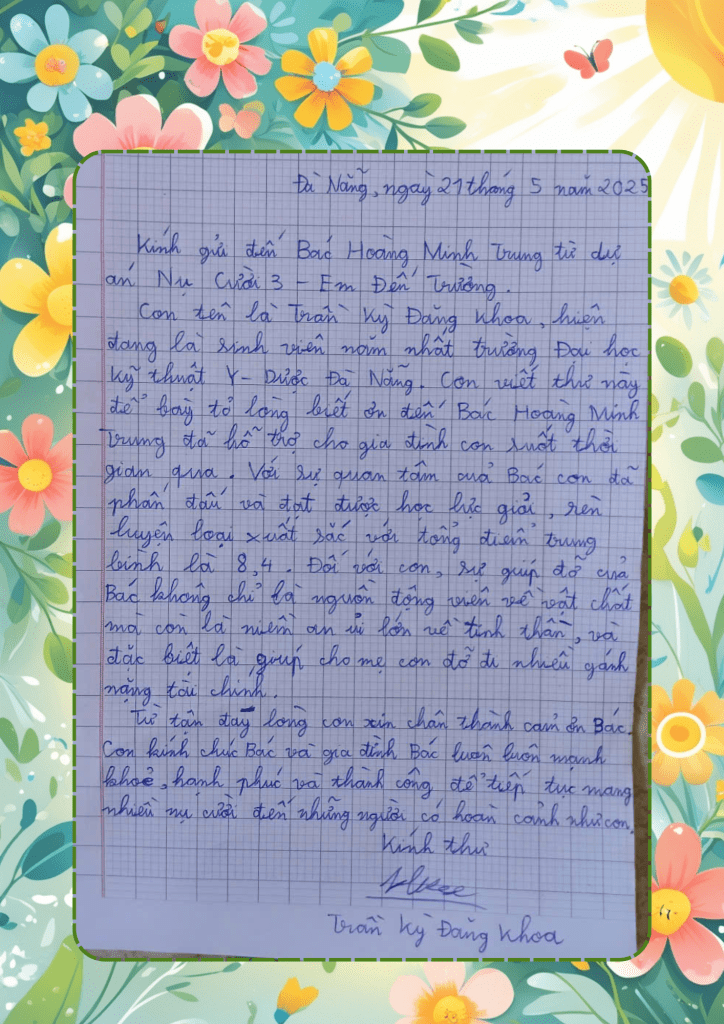 Đà Nẵng, ngày 21 tháng 5 năm 2025
Kính gửi đến Bác Hoàng Minh Trung từ dự
án Nụ Cười 3 - Em Đến Trường.
Con tên là Trần Kỳ Đăng Khoa, hiện
đang là sinh viên năm nhất trường Đại học
Kỹ thuật Y - Dược Đà Nẵng. Con viết thư này
để bày tỏ lòng biết ơn đến Bác Hoàng Minh
Trung đã hỗ trợ cho gia đình con suốt thời
gian qua. Với sự quan tâm của Bác con đã
phấn đấu và đạt được học lực giỏi, rèn
luyện loại xuất sắc với tổng điểm trung
bình là 8,4. Đối với con, sự giúp đỡ của
Bác không chỉ là nguồn động viên về vật chất
mà còn là niềm an ủi lớn về tinh thần, và
đặc biệt là giúp cho mẹ con đỡ đi nhiều gánh
nặng tài chính.
Từ tận đáy lòng con xin chân thành cảm ơn Bác.
Con kính chúc Bác và gia đình Bác luôn luôn mạnh
khoẻ, hạnh phúc và thành công để tiếp tục mang
nhiều nụ cười đến những người có hoàn cảnh như con.
Kính thư
Trần Kỳ Đăng Khoa